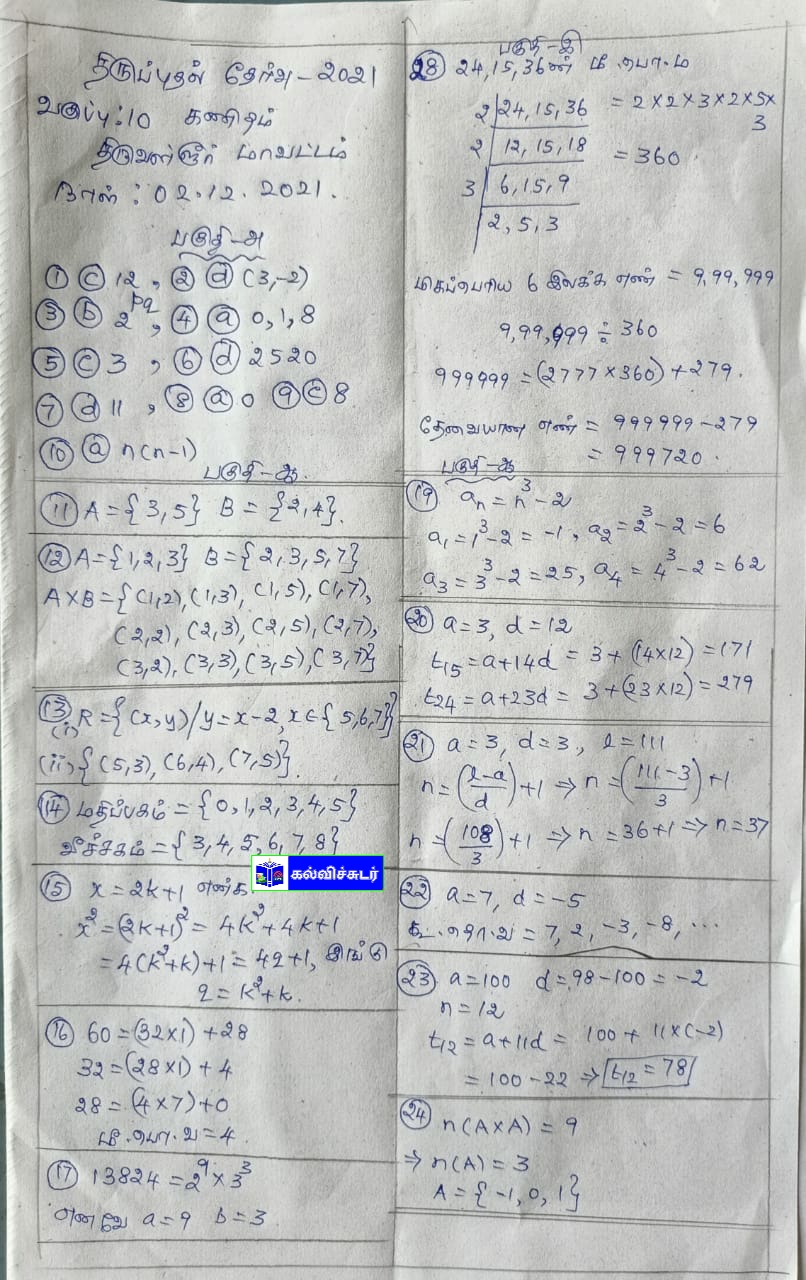 திருப்புதல் தேர்வு - 2021
வகுப்பு: 10 கணிதம்
திருவள்ளூர் மாவட்டம்
நாள் : 02.12.2021.
பகுதி-அ
① ⓒ 12 , ② ⓓ (3,-2)
③ ⓑ 2^pq , ④ ⓐ 0,1,8
⑤ ⓒ 3 , ⑥ ⓓ 2520
⑦ ⓓ 11 , ⑧ ⓐ 0 ⑨ ⓒ 8
⑩ ⓐ n(n-1)
பகுதி-ஆ
⑪ A={3,5} B={2,4}.
⑫ A={1,2,3} B={2,3,5,7}
A×B={(1,2),(1,3),(1,5),(1,7),
(2,2),(2,3),(2,5),(2,7),
(3,2),(3,3),(3,5),(3,7)}
⑬ (i) R={(x,y)/y=x-2, x∈{5,6,7}}
(ii) {(5,3),(6,4),(7,5)}.
⑭ மதிப்பகம்={0,1,2,3,4,5}
வீச்சகம்={3,4,5,6,7,8}
கல்விச்சுடர்
⑮ x=2k+1 என்க.
x²=(2k+1)²=4k²+4k+1
=4(k²+k)+1=4q+1, இங்கு
q=k²+k.
⑯ 60=(32×1)+28
32=(28×1)+4
28=(4×7)+0
மீ.பொ.வ=4.
⑰ 13824=2⁹×3³
எனவே a=9 b=3
பகுதி-இ
㉘ 24,15,36ன் மீ.பொ.ம
2|24,15,36 =2×2×3×2×5×
3
2|12,15,18 =360.
3|6,15,9
|2,5,3
மிகப்பெரிய 6 இலக்க எண் = 9,99,999
9,99,999÷360
999999=(2777×360)+279.
தேவையான எண் = 999999-279
= 999720.
பகுதி-ஆ
⑲ aₙ=n³-2
a₁=1³-2=-1, a₂=2³-2=6
a₃=3³-2=25, a₄=4³-2=62
⑳ a=3, d=12
t₁₅=a+14d=3+(14×12)=171
t₂₄=a+23d=3+(23×12)=279
㉑ a=3, d=3, l=111
n=(l-a/d)+1⇒n=(111-3/3)+1
n=(108/3)+1⇒n=36+1⇒n=37
㉒ a=7, d=-5
கூ.தொ.வ=7, 2, -3, -8, ...
㉓ a=100 d=98-100=-2
n=12
t₁₂=a+11d=100+11×(-2)
=100-22⇒t₁₂=78
㉔ n(A×A)=9
⇒n(A)=3
A={-1,0,1}